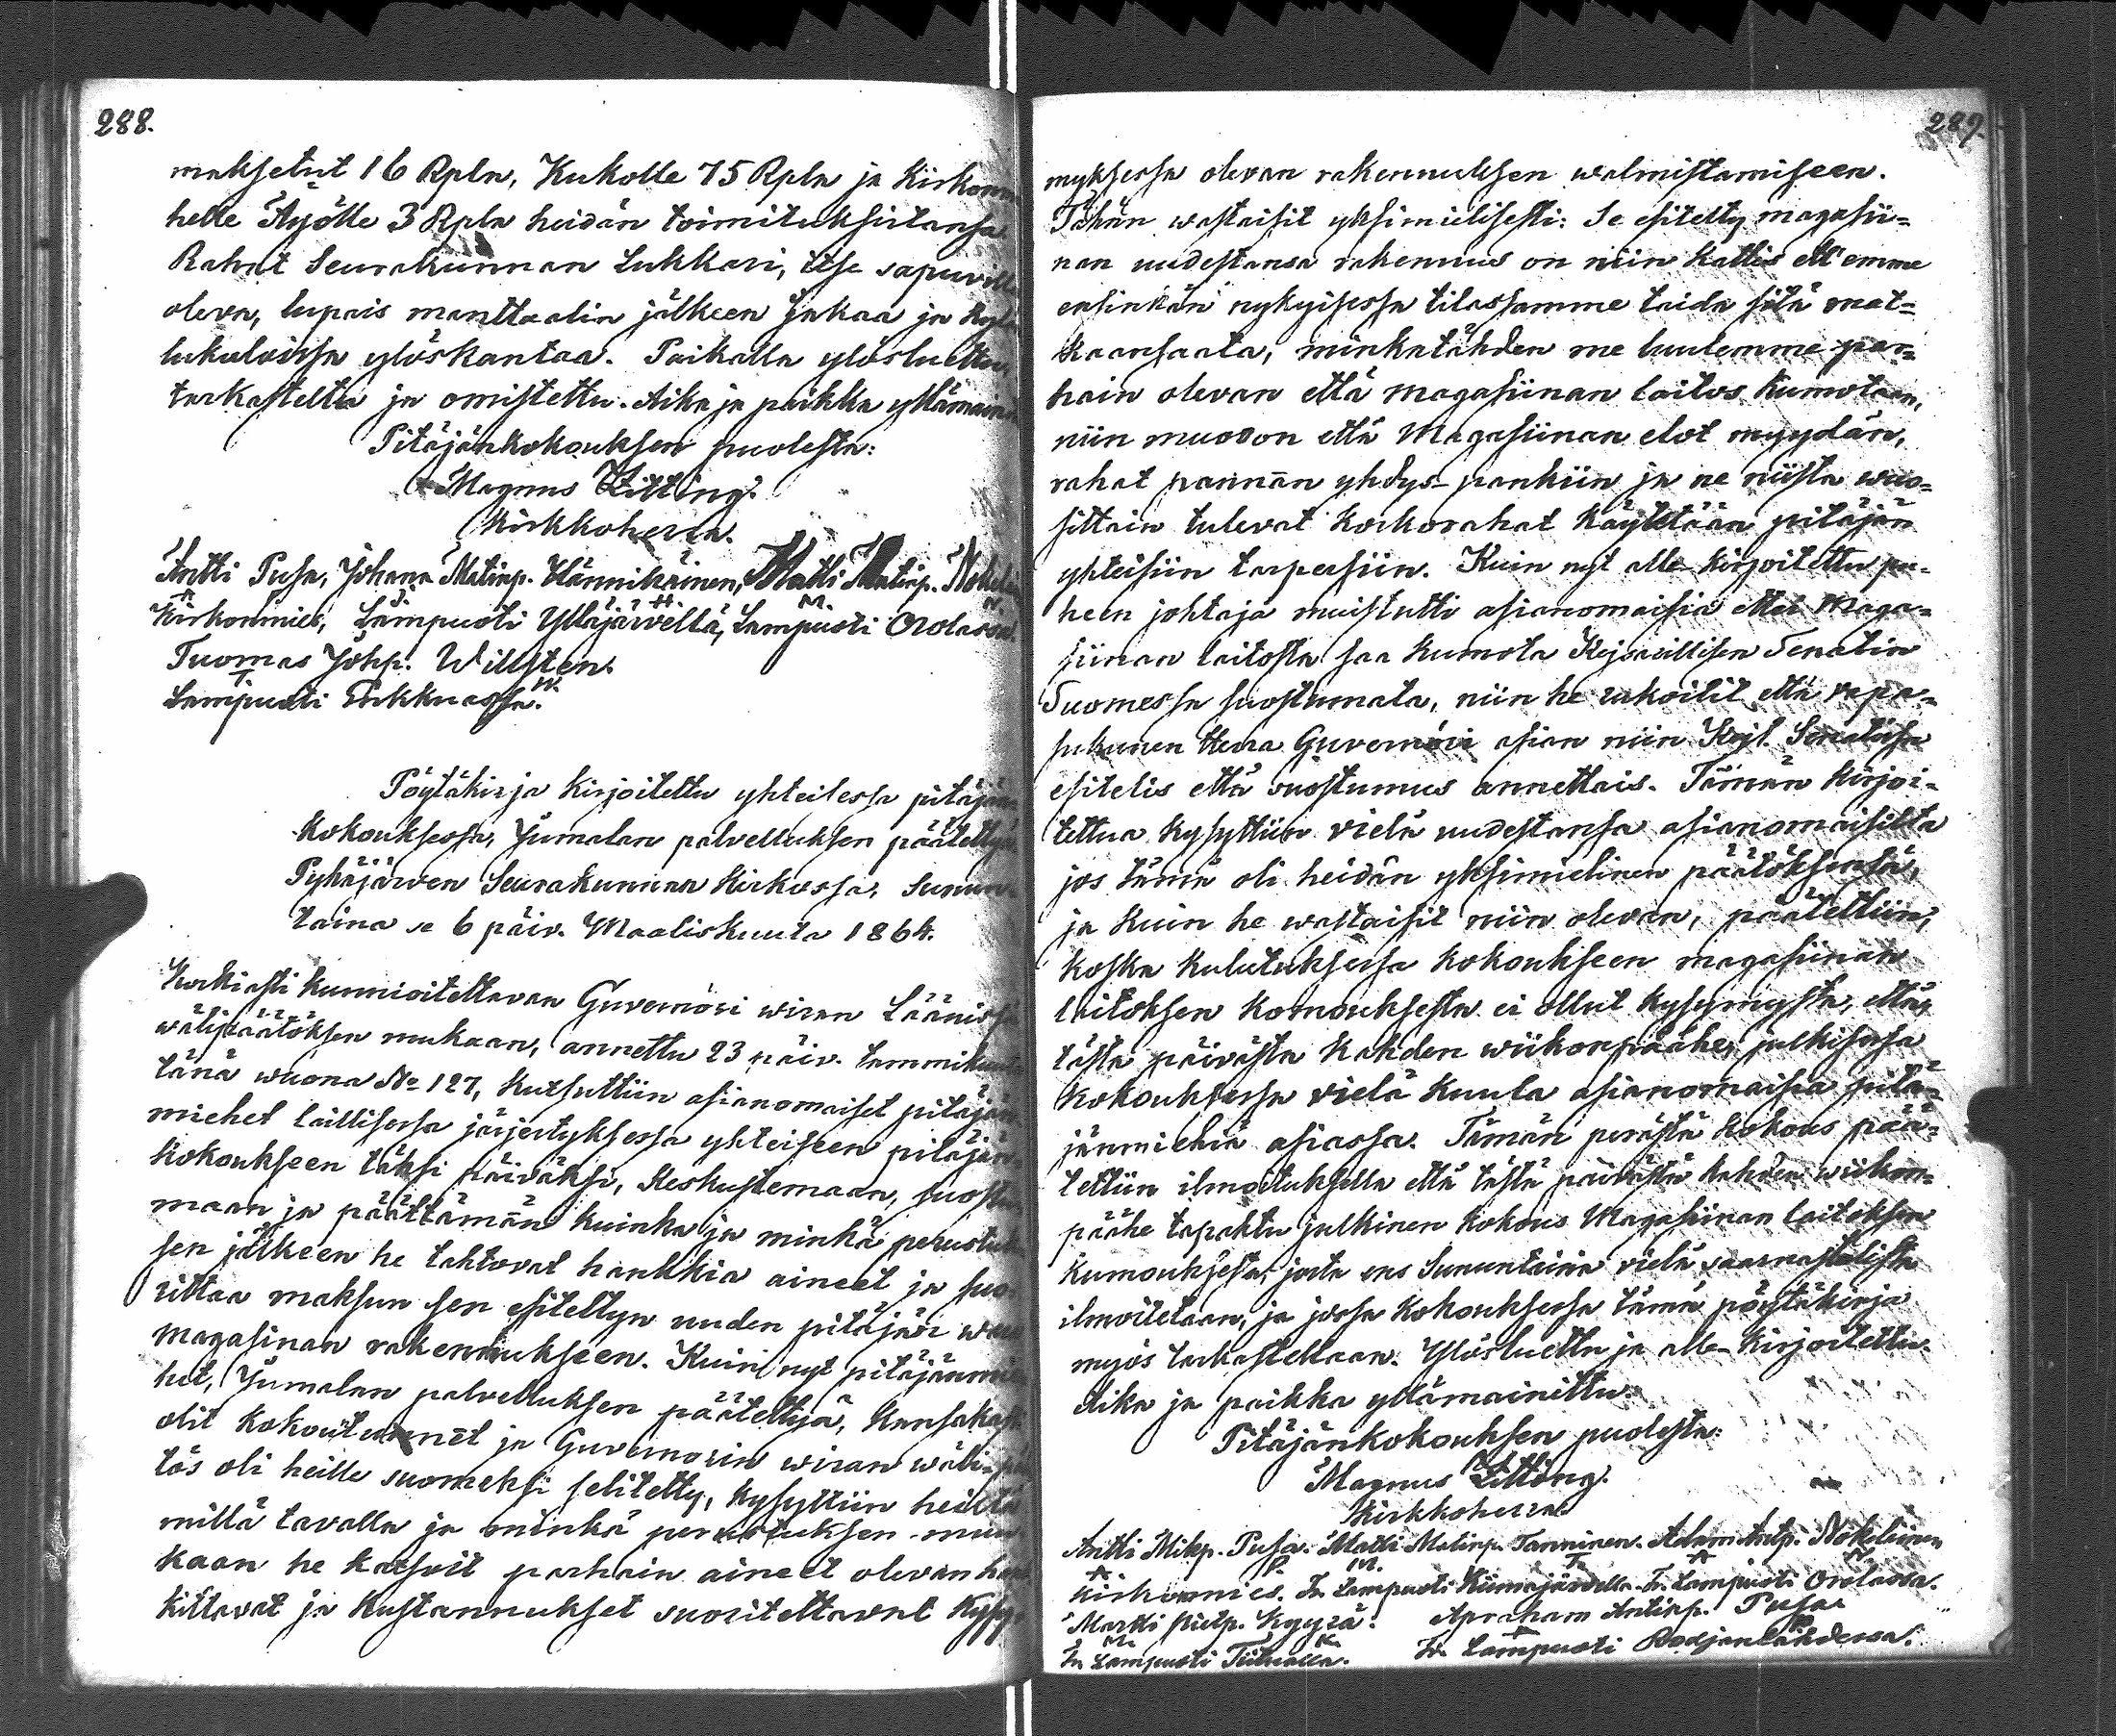 288.
maksetut 16 Rpla, Kukolle 75 Rpla ja Kirkonm
helle Äyölle 3 Rpla heidän toimituksistansa
Rahat Seurakunnan Lukkari, itse sapuvilla
oleva, lupais manttaalin jälkeen jakaa ja
lukuloissa ylöskantaa. Paikalla ylösluettu,
tarkasteltu ja omistettu. Aika ja paikka yllämain
Pitäjänkokouksen puolesta:
Magnus Zitting.
Kirkkoherra.
Antti Pusa, Johana Matinp. Hännikäinen, Matti Matinp.
A J H. M. N
Kirkonmies, Lampuoti Ylläjärvellä, Lampuoti Orolassa.
Tuomas Johp. Willsten.
T W.
Lampuoti Pukkuassa.
Pöytäkirja kirjoitettu yhteisessa pitäjän
kokouksessa, Jumalan palvelluksen päätettyä
Pyhäjärwen Seurakunnan kirkossa, Sunnun
taina se 6 päiv. Maaliskuuta 1864.
Korkiasti kunnioitettavan Guvernöri wiran Läänissä
wälipäätöksen mukaan, annettu 23 päiv. tammikuuta
tänä wuona No 127, kutsuttiin asianomaiset pitäjän
miehet laillisessa järjestyksessa yhteiseen pitäjän
kokoukseen täksi päiväksi, keskustemaan, suostu
maan ja päättämän kuinka ja minkä perustuk
sen jälkeen he tahtovat hankkia aineet ja suo
rittaa maksun sen esitettyn uuden pitäjän
magasinan rakennukseen. Kuin nyt pitäjänmie
het, Jumalan palvelluksen päätettyä,
olit kokoutunnet ja Guvernorin wiran wäli-pää
tös oli heille suomeksi selitetty, kysyttiin heiltä
millä tavalla ja minkä perustuksen mu
kaan he katsoit parhain aineet olevan han
kittavat ja kustannukset suoritettavat kysy
289.
myksessa olevan rakennuksen walmistamiseen.
Tähän wastaisit yksimielisesti: Se esitetty magasii=
nan uudestansa rakennus on niin kallis ett'emme
ensinkän nykyisessa tilassamme taida sitä mat=
kaansaata, minkatähden me luulemme par=
hain olevan että magasiinan laitos kumotaan,
niin muodon että Magasiinan elot myydän,
rahat pannan yhdys-pankiin ja ne niista wuo=
sittain tulevat korkorahat käytetään pitäjän
yhteisiin tarpesiin. Kuin nyt alle kirjoitettu pu=
heen johtaja muistutti asianomaisia ettei Maga=
siinan laitosta saa kumota Kejsarillisen Senatin
Suomessa suostumata, niin he rukoilit että vapa=
sukunen Herra Guvernöri asian niin Kejs. Senatissa
esitelis että suostumus annettais. Tämän kirjoi=
tettua kysyttiin vielä uudestansa asianomaisilta
jos tämä oli heidän yksimielinen päätöksensä,
ja kuin he wastaisit niin olevan, päätettiin,
koska kulutuksessa kokoukseen magasiinan
laitoksen komouksesta ei ollut kysymysta, että
tästa päivästa kahden wiikonpäähe, julkisessa
kokouksessa vielä kuula asianomaisia pitä=
jänmiehiä asiassa. Tämän perästa kokous pää=
tettiin ilmoituksella että tästä päivästä kahden wiikon=
päähe tapahtu julkinen kokous Magasiinan laitoksen
kumouksesta, josta ens Sunnuntaina vielä saarnastolista
ilmoitetaan, ja jossa kokouksessa tämä pöytäkirja
myös tarkastellaan. Ylösluettu ja alle kirjoitettu.
Aika ja paikka yllämainittu.
Pitäjänkokouksen puolesta:
Magnus Zitting.
Kirkkoherra
Antti Mikp. Pusa. Matti Matinp. Tanninen. Adam Antp. Nokelainen
A P M. T A N
Kirkonmies. Tr. Lampuoti Kiimajärvella. Tr. Lampuoti Orolassa.
Martti Pietp. Kyyrä. Apraham Antinp. Pusa
M. K. A P
Tr. Lampuoti Tiitualla. Tr. Lampuoti Rodjanlahdessa.